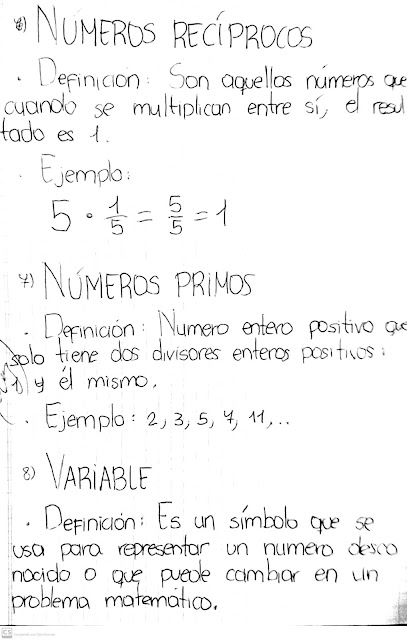 6) NÚMEROS RECÍPROCOS
· Definición: Son aquellos números que
cuando se multiplican entre sí, el resul
tado es 1.
· Ejemplo:
5 · 1/5 = 5/5 = 1
7) NÚMEROS PRIMOS
· Definición: Numero entero positivo que
solo tiene dos divisores enteros positivos:
1 y él mismo.
· Ejemplo: 2, 3, 5, 7, 11,..
8) VARIABLE
· Definición: Es un símbolo que se
usa para representar un numero desco
nocido o que puede cambiar en un
problema matemático.
CS